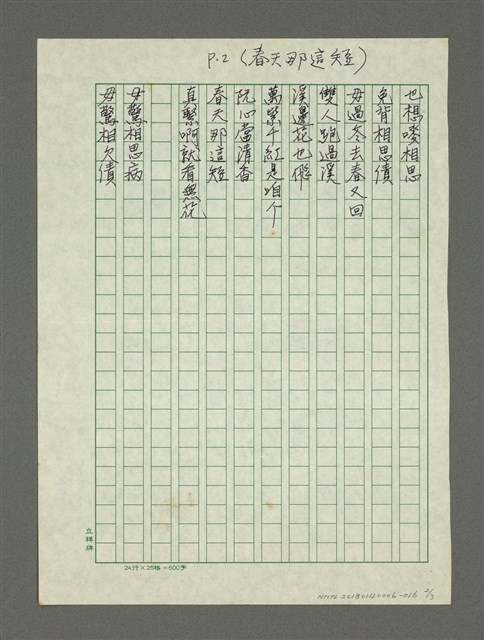 P.2（春天那這短）
也想嘜相思
免背相思債
毋過冬去春又回
雙人跑過溪
溪邊花也飛
萬紫千紅是咱个
阮心當清香
春天那這短
直緊啊就看無花
毋驚相思病
毋驚相欠債
立祥牌
24行×25格=600字
NMTL20180140006-016 2/3